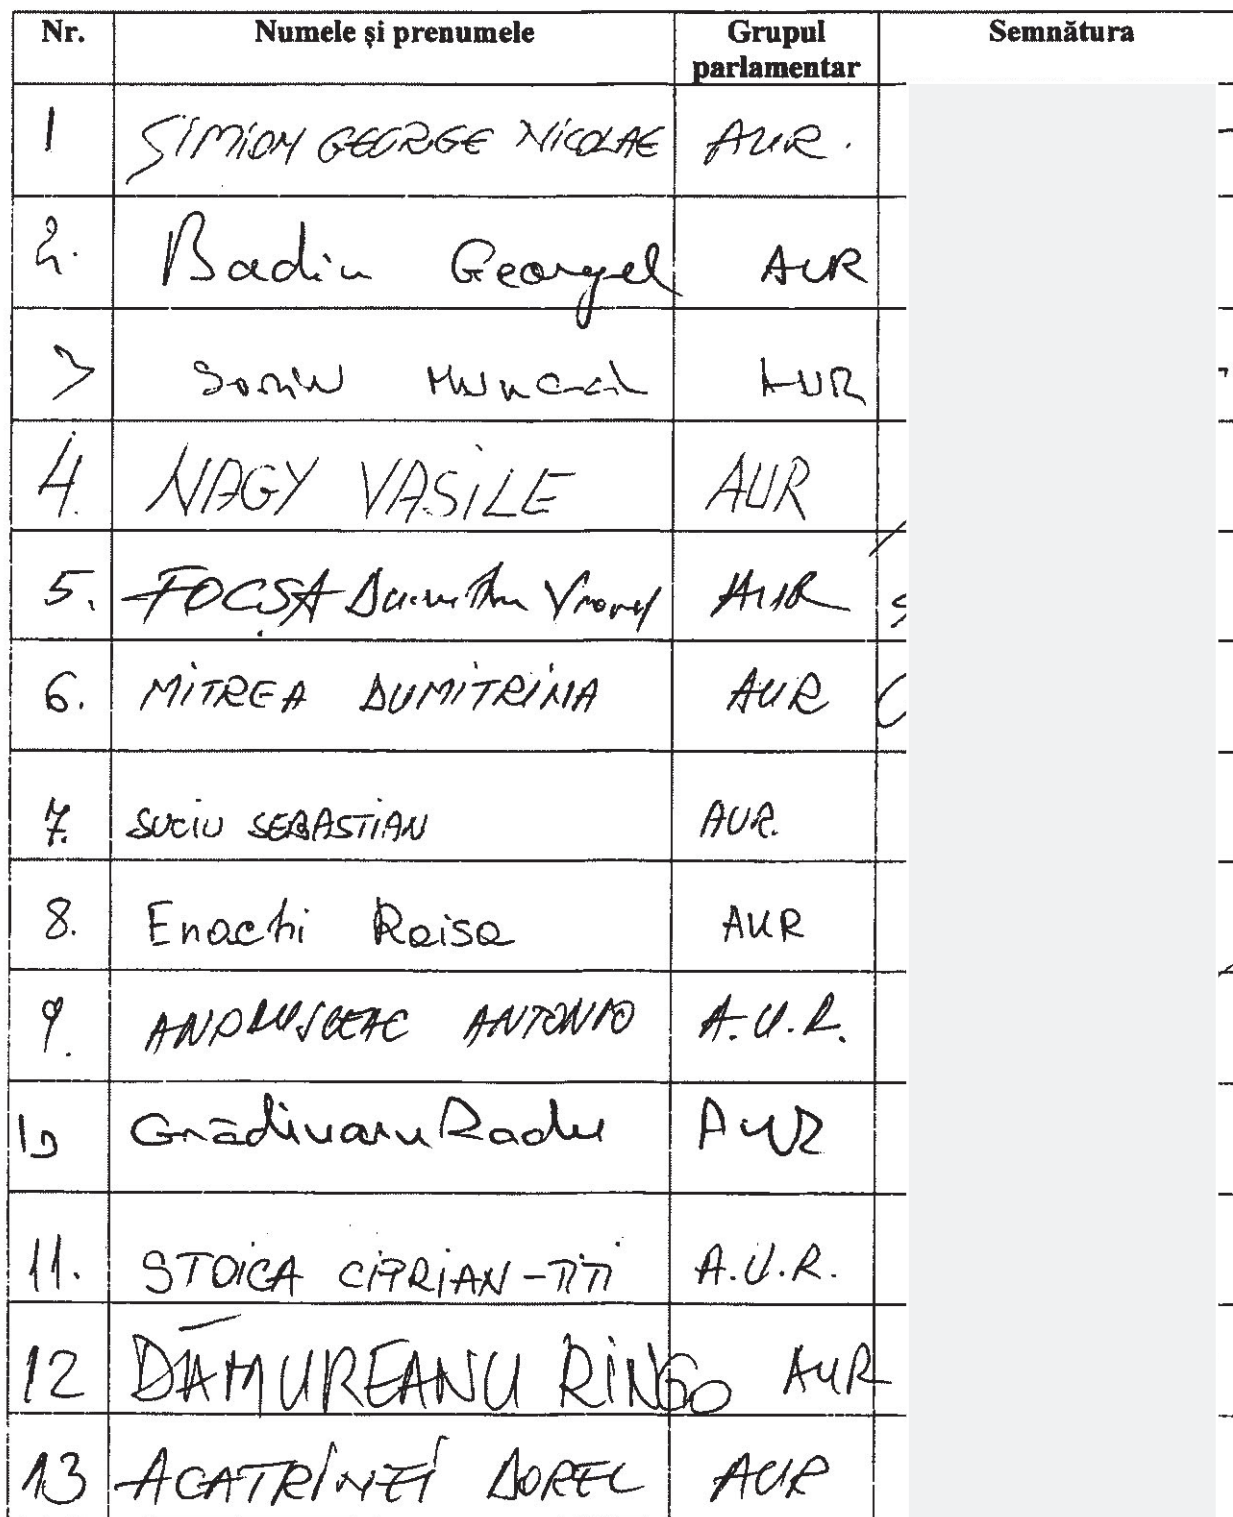 Nr. Numele și prenumele Grupul parlamentar Semnătura
1 SIMION GEORGE NICOLAE AUR.
2. Badiu Georgel AUR
3 Sorin Muncaci AUR
4. NAGY VASILE AUR
5. FOCȘA Dumitru Viorel AUR
6. MITREA DUMITRINA AUR
7. SUCIU SEBASTIAN AUR.
8. Enachi Raisa AUR
9. ANDRUSCEAC ANTONIO A.U.R.
10 Grădinaru Radu AUR
11. STOICA CIPRIAN-TITI A.U.R.
12 DĂMUREANU RINGO AUR
13 ACATRINEI DOREL AUR